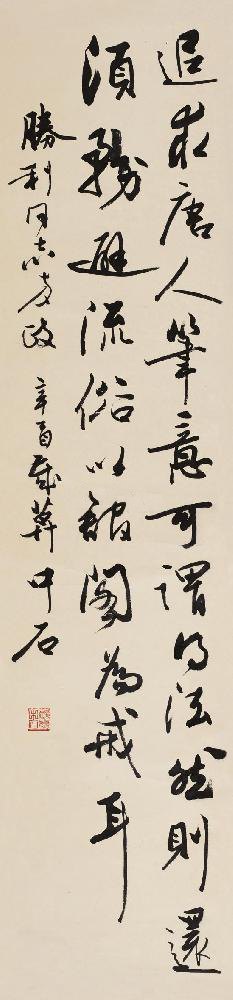 追求唐人筆意可謂得法然則還
須務避流俗以館閣為戒耳
勝利同志教政 辛酉歲暮 中石